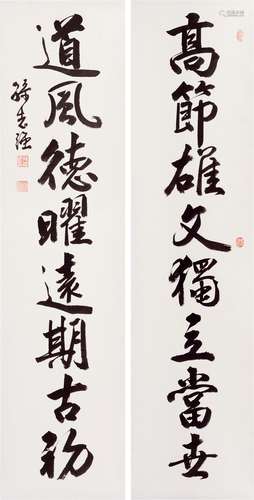 高節雄文獨立當世
道風德曜遠期古初